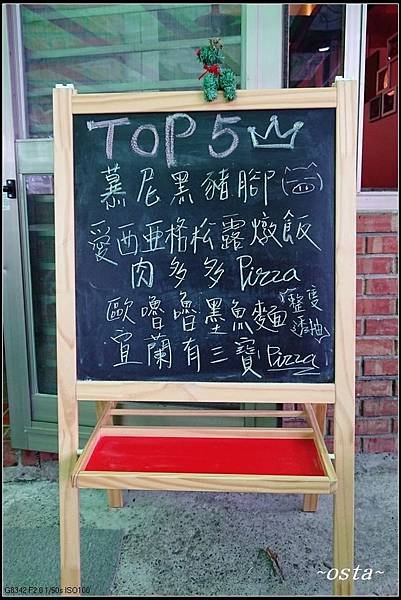 TOP 5
慕尼黑豬腳
愛西亞格松露燉飯
肉多多Pizza
歐嚕嚕墨魚麵
整隻透抽
宜蘭有三寶Pizza
~osta~
G8342 F2.0 1/50s ISO100